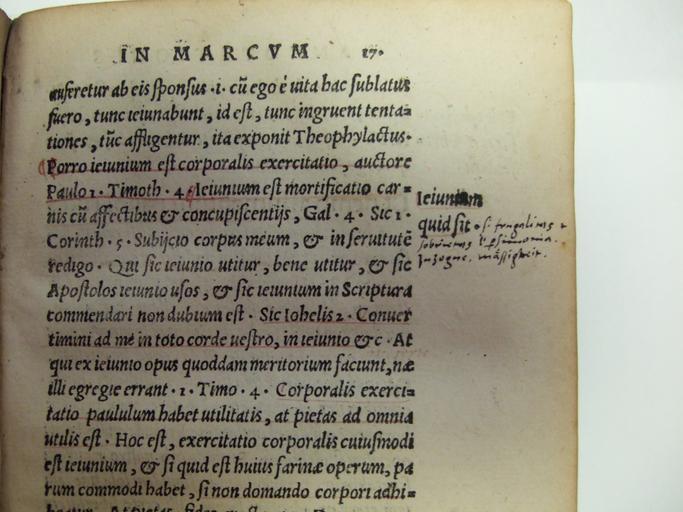 IN MARCVM 17.
auferetur ab eis sponsus .i. cũ ego è uita hac sublatus
fuero, tunc ieiunabunt, id est, tunc ingruent tenta=
tiones, tũc affligentur, ita exponit Theophylactus.
Porro ieiunium est corporalis exercitatio, auctore
Paulo 1. Timoth. 4. Ieiunium est mortificatio car=
nis cũ affectibus & concupiscentijs, Gal. 4. Sic 1.
Corinth. 5. Subijcio corpus meum, & in seruitutẽ
redigo. Qui sic ieiunio utitur, bene utitur, & sic
Apostolos ieiunio usos, & sic ieiunium in Scriptura
commendari non dubium est. Sic Iohelis 2. Conuer
timini ad me in toto corde uestro, in ieiunio &c. At
qui ex ieiunio opus quoddam meritorium faciunt, næ
illi egregie errant. 1. Timo. 4. Corporalis exerci=
tatio paululum habet utilitatis, at pietas ad omnia
utilis est. Hoc est, exercitatio corporalis cuiusmodi
est ieiunium, & si quid est huius farinæ operum, pa
rum commodi habet, si non domando corpori adhi=
Ieiunium
quid sit.